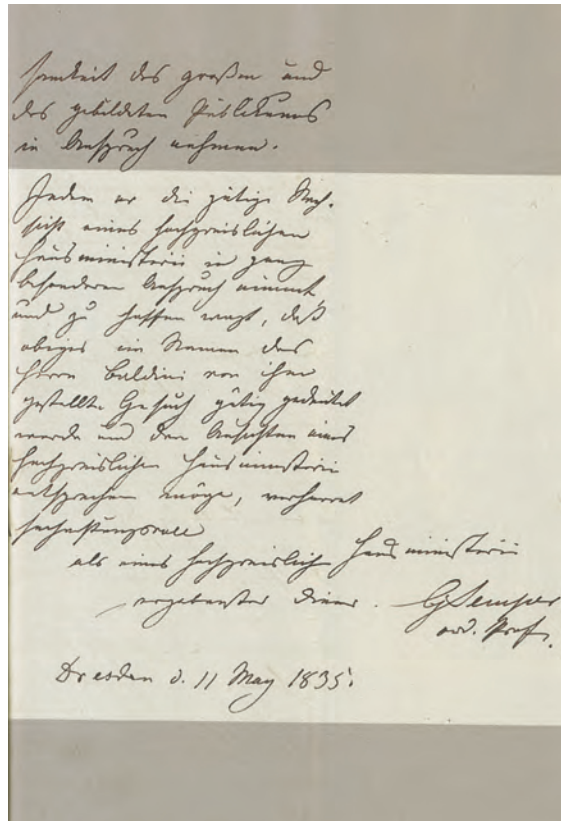 samkeit des großen und
des gebildeten Publikums
in Anspruch nehmen.
Indem er die gütige Nach-
sicht eines hochpreislichen
Hausministerii in ganz
besonderen Anspruch nimmt
und zu hoffen wagt, daß
obiges im Namen des
Herrn Baldini von ihm
gestellte Gesuch gütig gedeutet
werde und den Ansichten eines
hochpreislichen Hausministerii
entsprechen möge, verharret
hochachtungsvoll
als eines hochpreislichen Hausministerii
ergebenster Diener. GSemper
ord. Prof.
Dresden d. 11 May 1835.